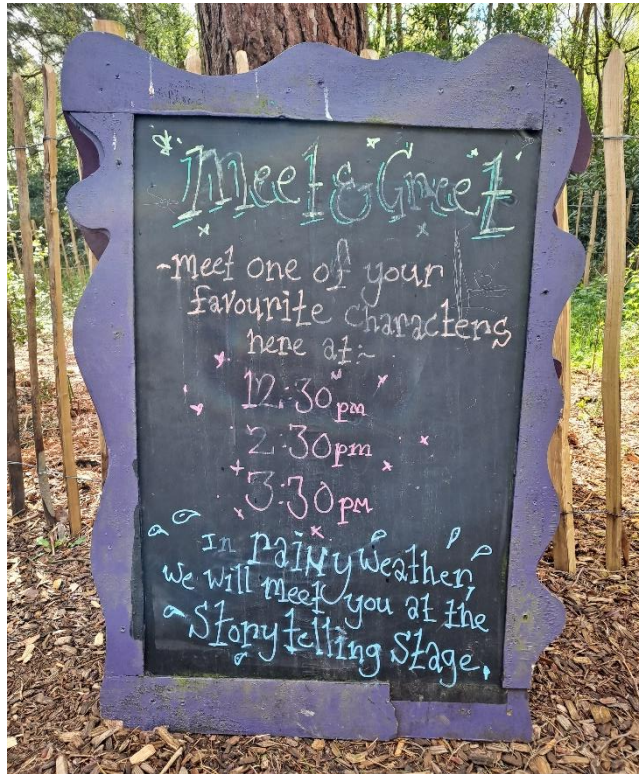 Meet & Greet
-meet one of your
favourite characters
here at:~
12:30pm
2:30pm
3:30pm
In rainy weather,
we will meet you at the
Storytelling Stage.